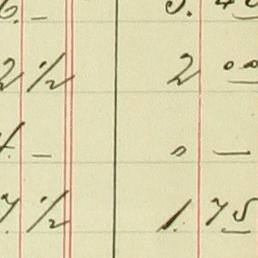 6. –
2 ½ 2 00
4. – 0 –
7 ½ 1. 75